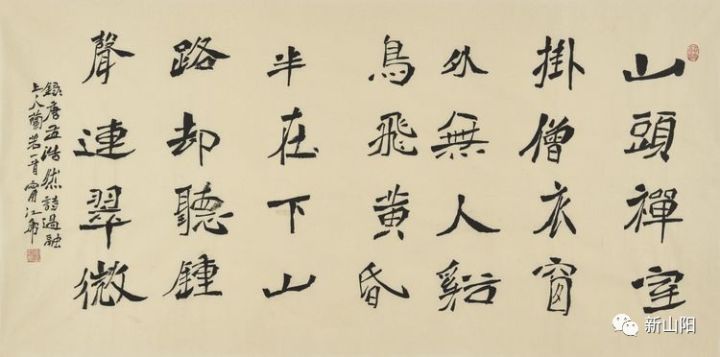 山頭禪室
掛僧衣窗
外無人谿
鳥飛黃昏
半在下山
路却聽鍾
聲連翠微
錄唐孟浩然詩過融
上人蘭若一首
新山阳